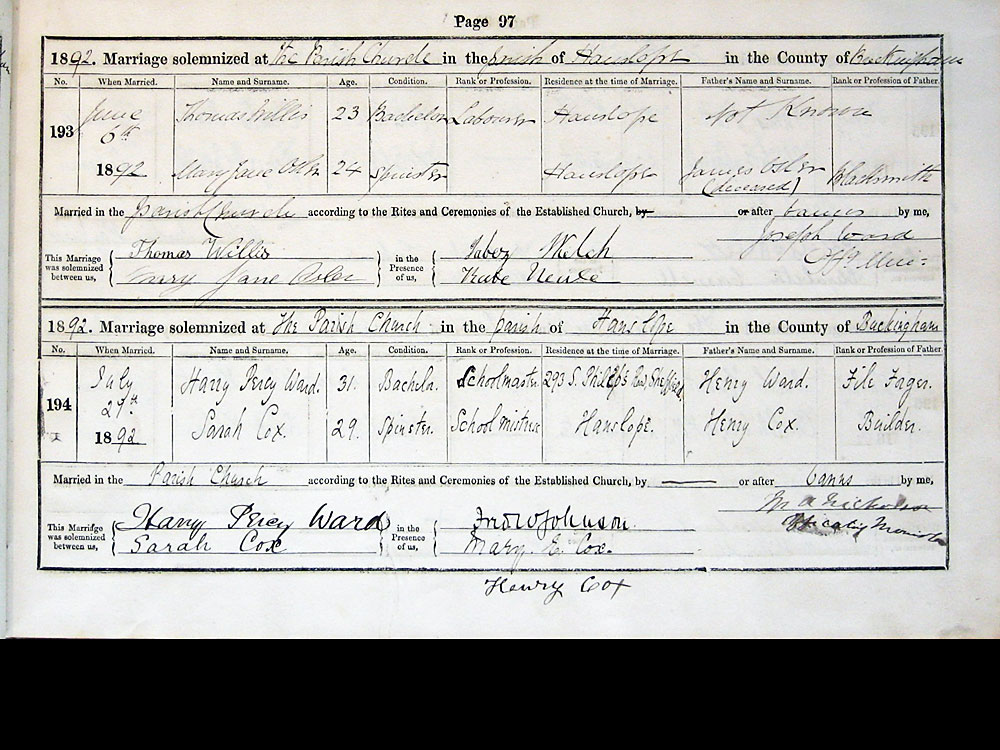 Page 97
1892. Marriage solemnized at the Parish Church in the parish of Hanslope in the County of Buckingham
No. When Married. Name and Surname. Age. Condition. Rank or Profession. Residence at the time of Marriage. Father's Name and Surname. Rank or Profession of Father.
193 June 6th 1892 Thomas Willis 23 Bachelor Labourer Hanslope Not Known
Mary Jane Osler 24 Spinster Hanslope James Osler (deceased) Blacksmith
Married in the Parish Church according to the Rites and Ceremonies of the Established Church, by or after banns by me,
Joseph Ward
This Marriage was solemnized between us, Thomas Willis in the Presence of us, Welch
Mary Jane Osler
1892. Marriage solemnized at The Parish Church in the parish of Hanslope in the County of Buckingham
No. When Married. Name and Surname. Age. Condition. Rank or Profession. Residence at the time of Marriage. Father's Name and Surname. Rank or Profession of Father
194 July 27th 1892 Harry Percy Ward. 31. Bachelr. Schoolmaster. 293 S. Philip's Rd, Sheffield. Henry Ward.
Sarah Cox. 29. Spinster. School mistress Hanslope. Henry Cox. Builder.
Married in the Parish Church according to the Rites and Ceremonies of the Established Church, by —— or after banns by me,
This Marriage was solemnized between us, Harry Percy Ward in the Presence of us, Johnson.
Sarah Cox Mary. E. Cox.
Henry Cox